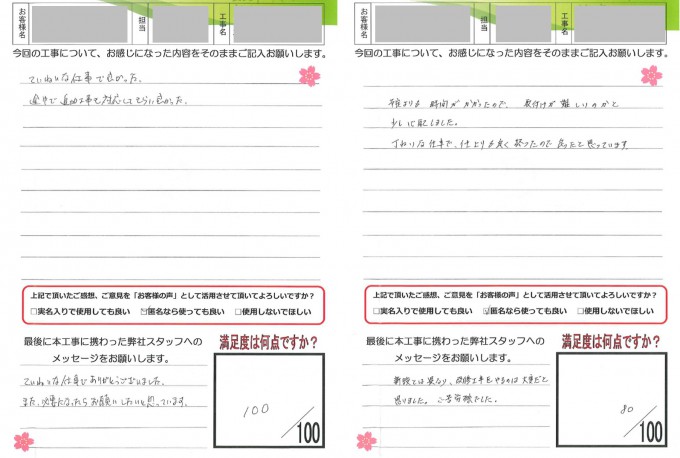 お客様名
担当
工事名
今回の工事について、お感じになった内容をそのままご記入お願いします。
ていねいな仕事で良かった。
途中で追加工事も対応してもらい良かった。
上記で頂いたご感想、ご意見を「お客様の声」として活用させて頂いてよろしいですか？
□実名入りで使用しても良い ☑匿名なら使っても良い □使用しないでほしい
最後に本工事に携わった弊社スタッフへの
メッセージをお願いします。
ていねいな仕事でありがとうございました。
また、必要になったらお願いしたいと思っています。
満足度は何点ですか？
100
/100
お客様名
担当
工事名
今回の工事について、お感じになった内容をそのままご記入お願いします。
予定よりも時間がかかったので、取付けが難しいのかと
少し心配しました。
丁ねいな仕事で、仕上りも良く終ったので良かったと思っています。
上記で頂いたご感想、ご意見を「お客様の声」として活用させて頂いてよろしいですか？
□実名入りで使用しても良い ☑匿名なら使っても良い □使用しないでほしい
最後に本工事に携わった弊社スタッフへの
メッセージをお願いします。
新設とは異なり、改修工事をやるのは大変だと
思いました。ご苦労様でした。
満足度は何点ですか？
80
/100